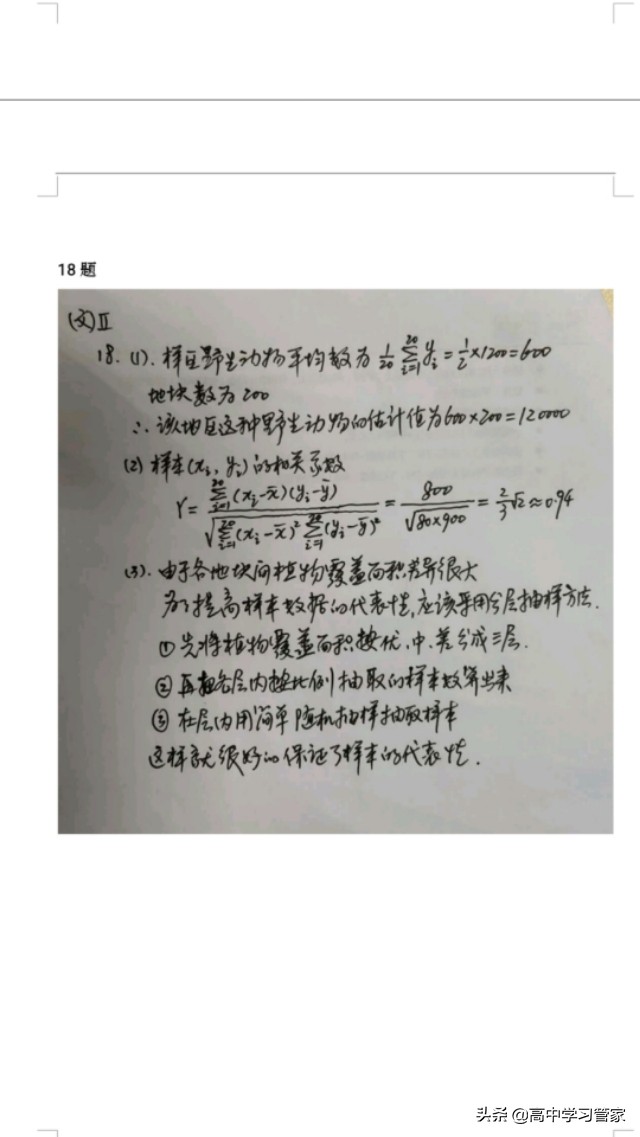 18 题
(文)Ⅱ
18. (1). 样区野生动物平均数为 1/20 ∑_{i=1}^{20} y_i = 1/2 × 1200 = 600
地块数为 200
∴ 该地区这种野生动物的估计值为 600 × 200 = 120000
(2) 样本 (x_i, y_i) 的相关系数
r = ∑_{i=1}^{20} (x_i - x̄)(y_i - ȳ) / √(∑_{i=1}^{20} (x_i - x̄)² ∑_{i=1}^{20} (y_i - ȳ)²) = 800 / √(80×900) = 2/3 √2 ≈ 0.94
(3). 由于各地块间植物覆盖面积差异很大
为了提高样本数据的代表性, 应该采用分层抽样方法.
① 先将植物覆盖面积按优. 中. 差分成三层.
② 再各层内按比例抽取的样本数算出来
③ 在层内用简单随机抽样抽取样本
这样就很好的保证了样本的代表性.
头条 @高中学习管家